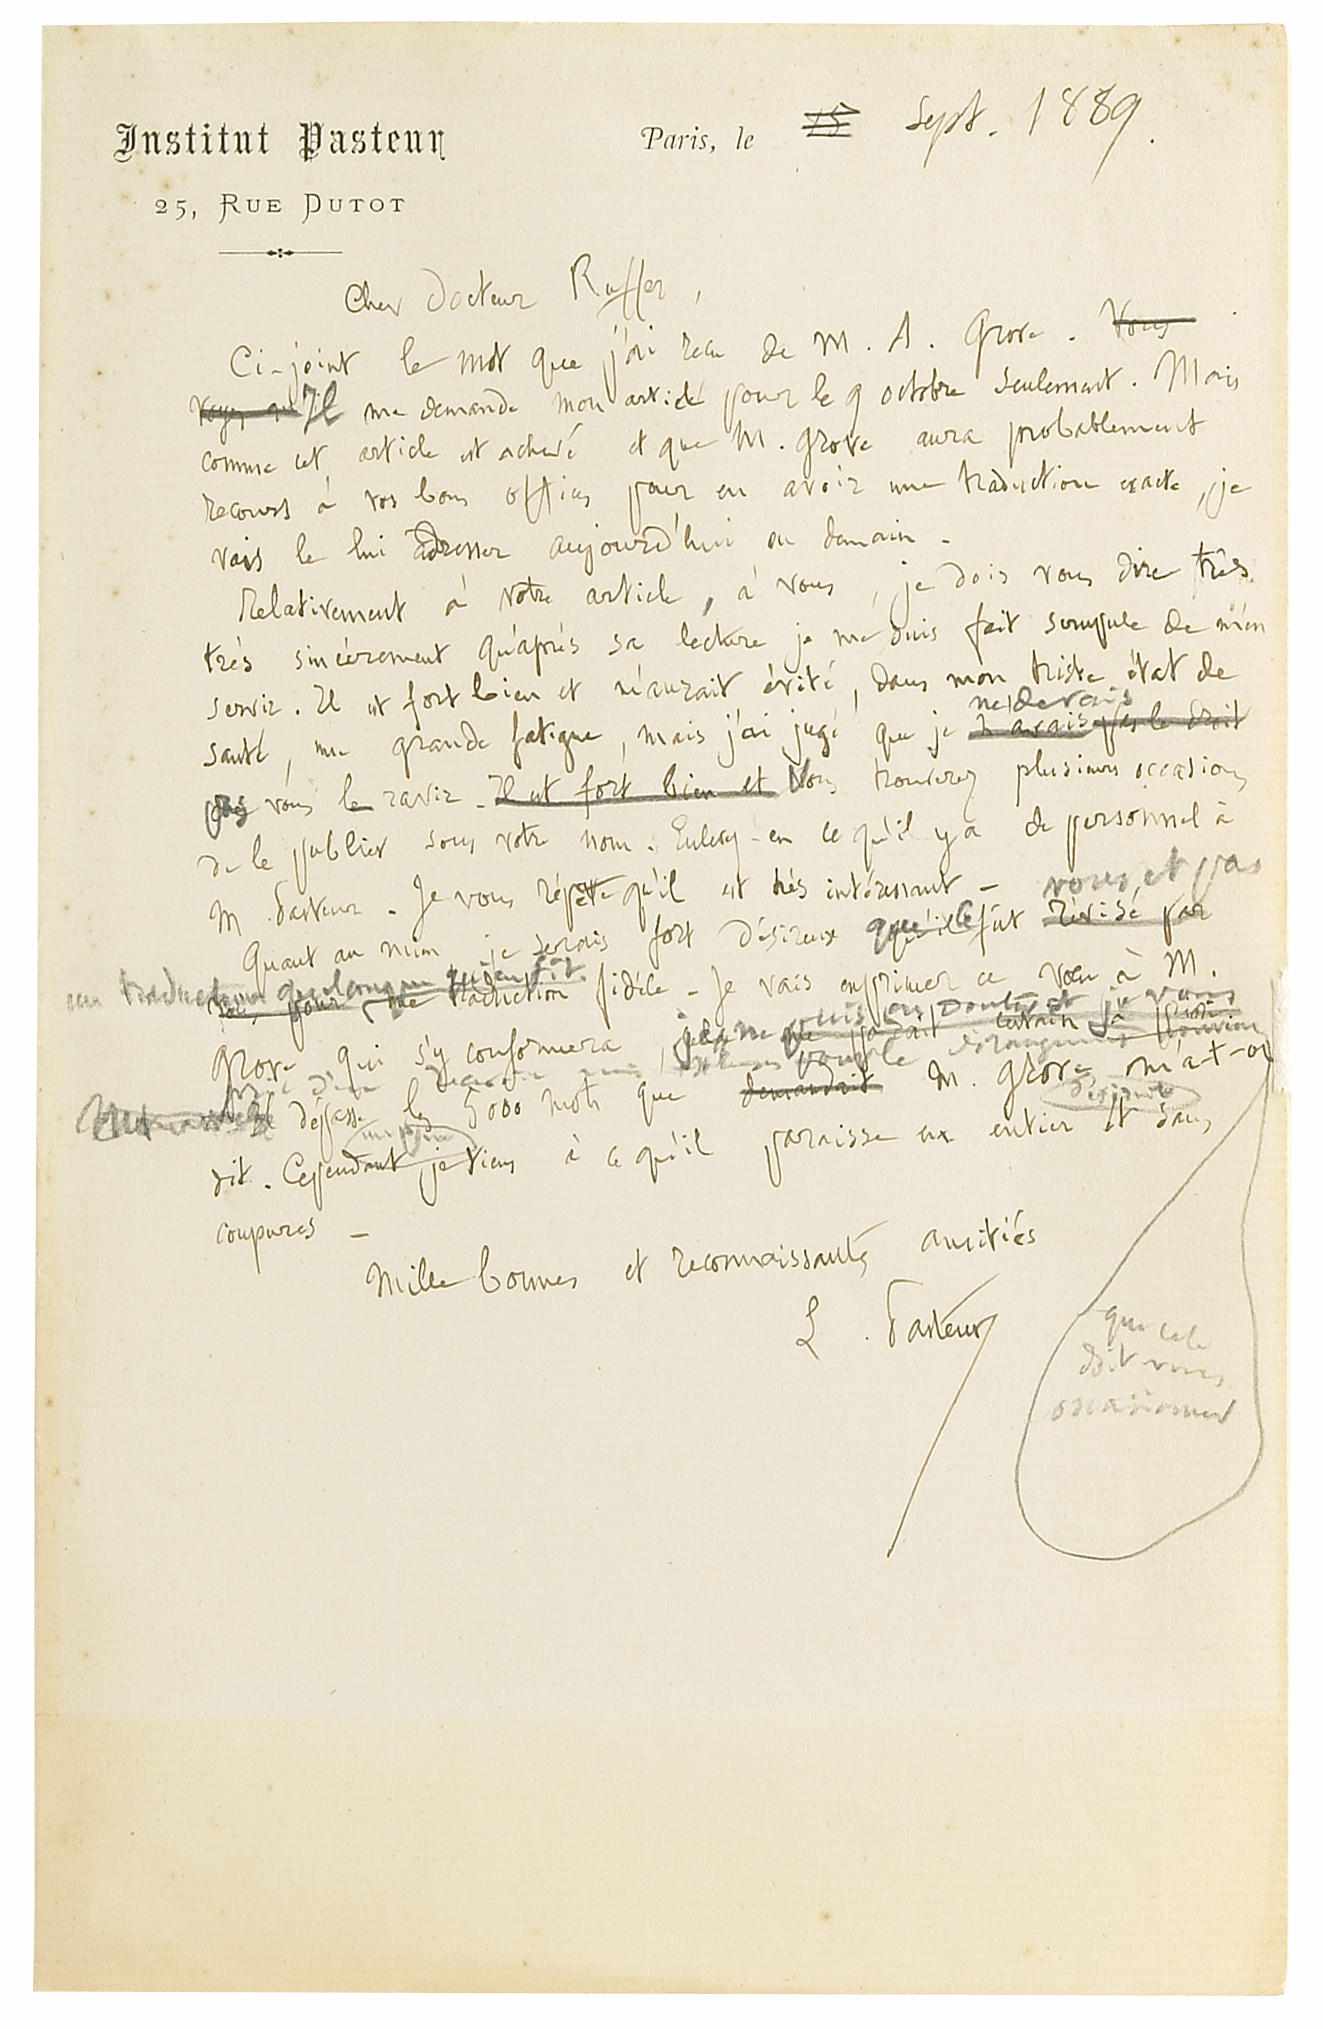 Institut Pasteur
25, RUE DUTOT
Paris, le 15 Sept. 1889.
Cher Docteur Ruffer,
Ci-joint le mot que j'ai reçu de M. A. Grove. Vous
Il me demande mon article pour le 9 octobre seulement. Mais
comme cet article est achevé et que M. Grove aura probablement
recours à vos bons offices pour en avoir une traduction exacte, je
vais le lui adresser aujourd'hui ou demain.
Relativement à votre article, à vous, je dois vous dire très
très sincèrement qu'après sa lecture je me suis fait scrupule de m'en
servir. Il est fort bien et m'aurait évité, dans mon triste état de
ne devais
santé, une grande fatigue, mais j'ai jugé que je n'avais pas le droit
pas vous le ravir. Il est fort bien et Vous trouverez plusieurs occasions
de le publier sous votre nom. Enlevez-en ce qu'il y a de personnel à
M. Pasteur. Je vous répète qu'il est très intéressant -
vous, et pas
Quant au mien, je serais fort désireux qu'il fût révisé par
un traducteur quelconque
pour une traduction fidèle - Je vais exprimer ce vœu à M.
je ne suis pas doute et je vous
Grove qui s'y conformera,
dérangement
Il dépasse les 5000 mots que demandait M. Grove, m'a-t-on
un peu
désirait
dit. Cependant je tiens à ce qu'il paraisse en entier et sans
coupures -
Mille bonnes et reconnaissantes amitiés
L. Pasteur
que cela
doit vous
occasionner